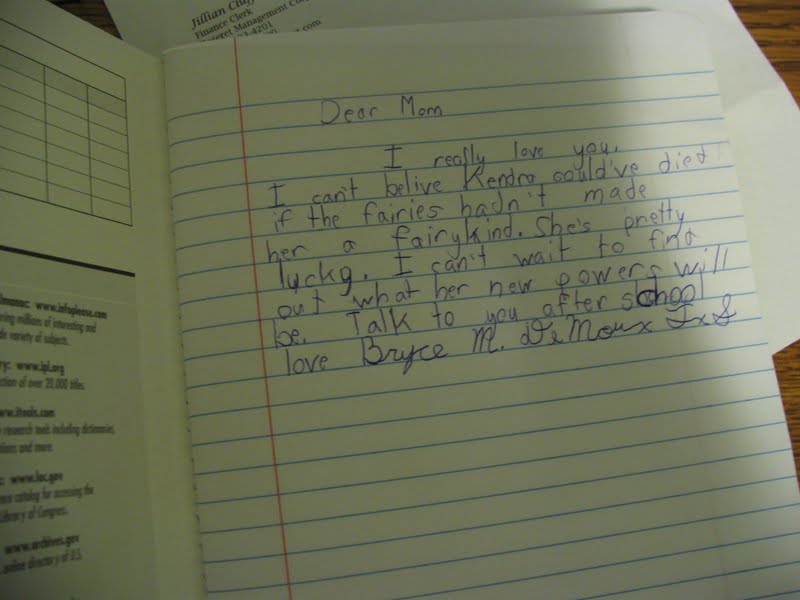 Jillian
Finance Clerk
Management
-4201
Dear Mom
I really love you.
I can't belive Kendra could've died
if the fairies hadn't made
her a fairykind. She's pretty
lucky. I can't wait to find
out what her new powers will
be. Talk to you after school
love Bryce M. DeMoux
almanac www.infoplease.com
ring millions of interesting and
de variety of subjects.
ry: www.ipl.org
ction of over 20,000 titles.
ww.itools.com
research tools including dictionaries,
tions and more.
c: www.loc.gov
nce catalog for accessing the
Library of Congress.
www.archives.gov
online directory of U.S.